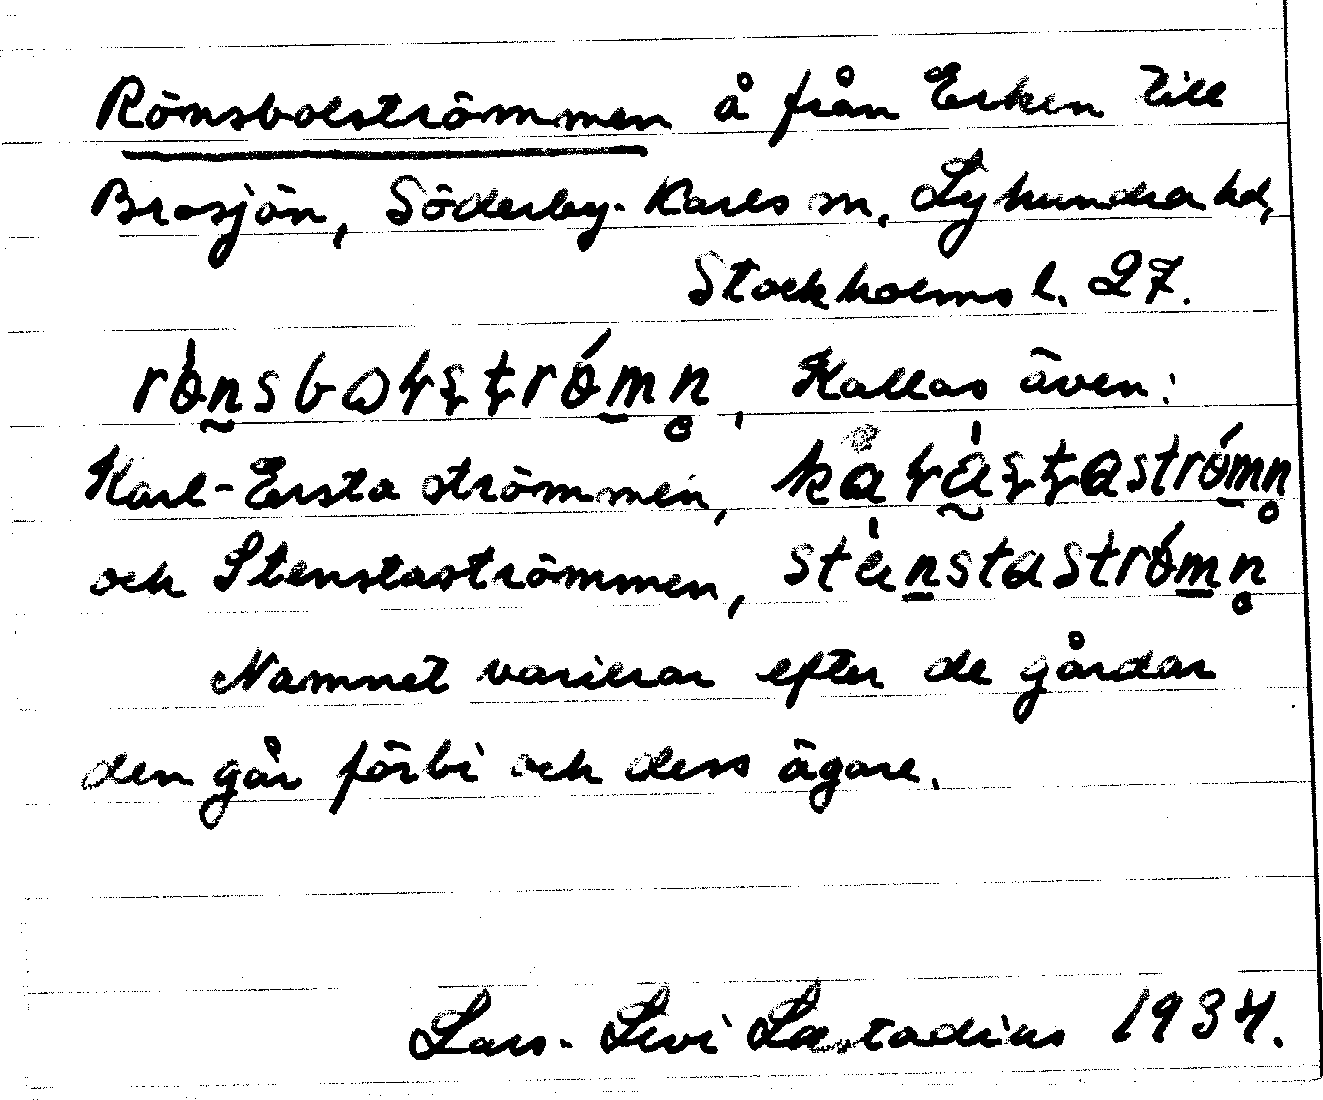 Rönsbolströmmen å från Erken till
Brosjön, Söderby-Karls sn, Lyhundra hd,
Stockholms l. 27.
Kallas även:
Karl-Ersta strömmen,
och Stenstaströmmen,
Namnet varierar efter de gårdar
den går förbi och dess ägare.
Lars-Levi Læstadius 1934.